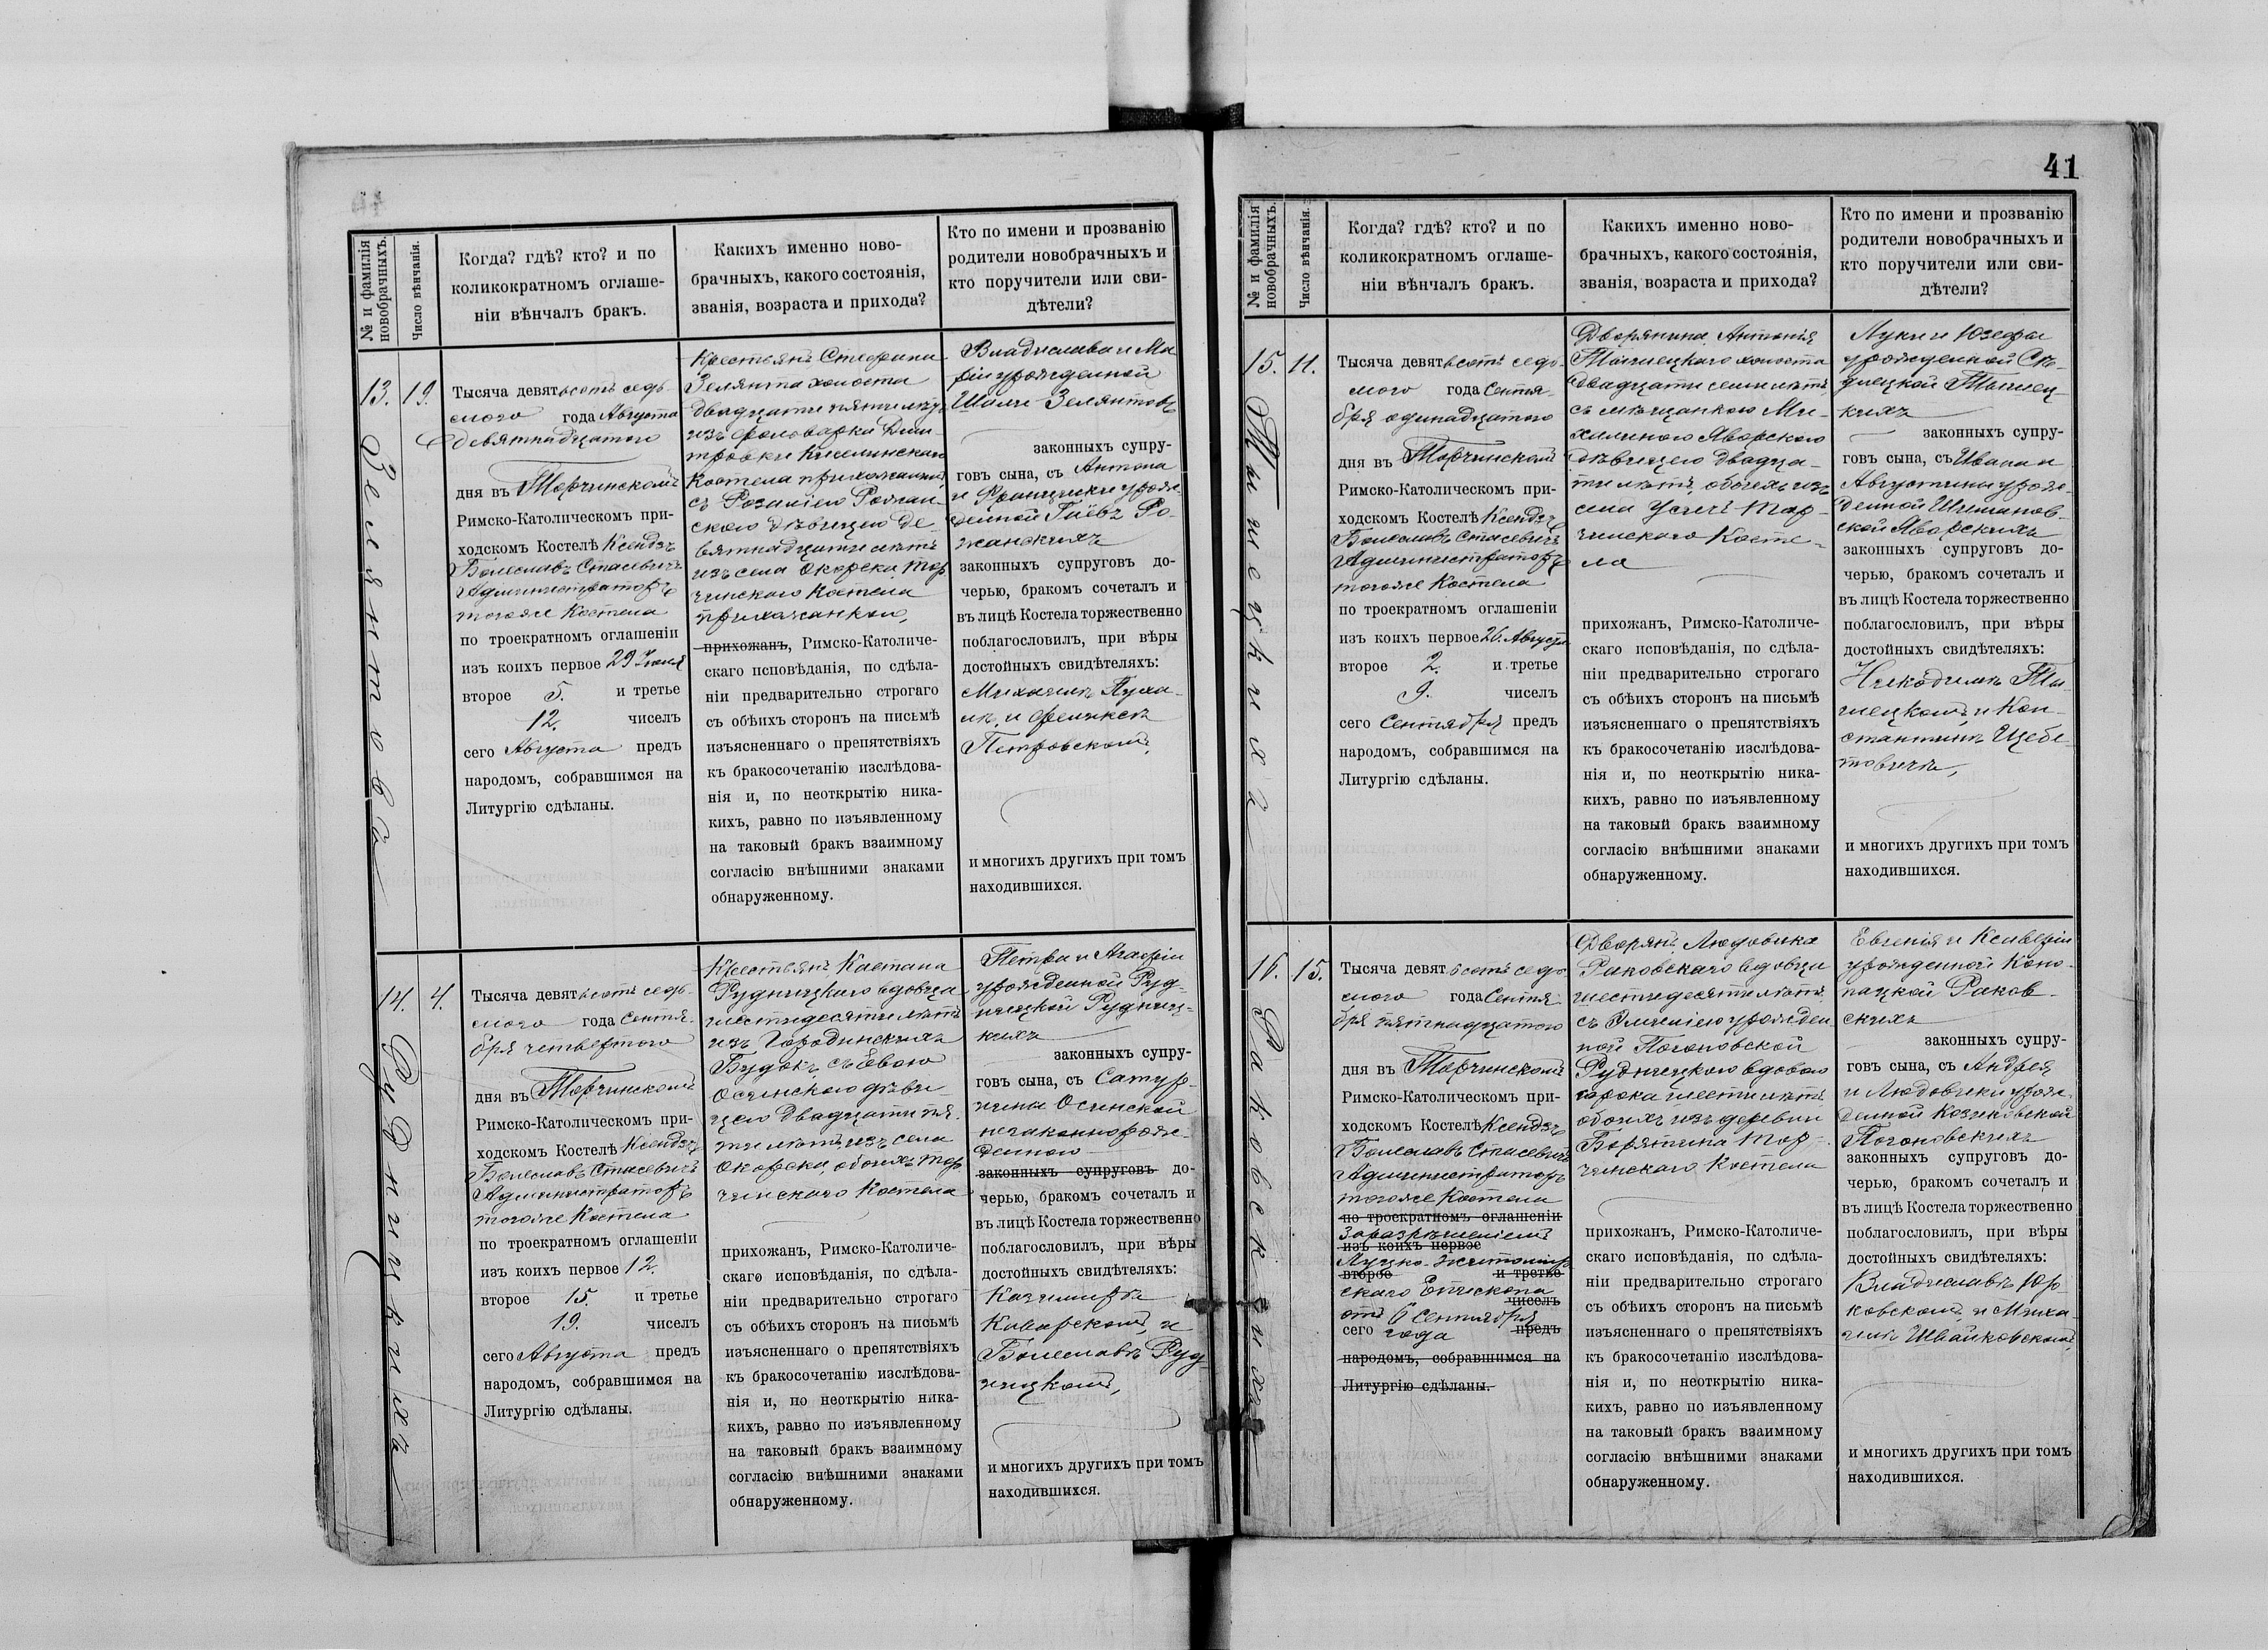 № и фамилія новобрачныхъ.
Число вѣнчанія.
Когда? гдѣ? кто? и по
коликократномъ оглаше-
ніи вѣнчалъ бракъ.
Какихъ именно ново-
брачныхъ, какого состоянія,
званія, возраста и прихода?
Кто по имени и прозванію
родители новобрачныхъ и
кто поручители или сви-
дѣтели?
13.
Зелянтовъ
19.
Тысяча девятьсотъ седь-
мого года Августа
девятнадцатого
дня въ Торчинскомъ
Римско-Католическомъ при-
ходскомъ Костелѣ Ксендзъ
Болеславъ Стасевичъ
Администраторъ
тогоже Костела
по троекратномъ оглашеніи
изъ коихъ первое 29 Іюля
второе 5. и третье
12. чиселъ
сего Августа предъ
народомъ, собравшимся на
Литургію сдѣланы.
Крестьянъ Стефана
Зелянта холоста
двадцати пяти лѣтъ
изъ фольварка Дми-
тровки Киселинскаго
Костела прихожанина
съ Розаліею Рожан-
скою дѣвицею де-
вятнадцати лѣтъ
изъ села Окорска Тор-
чинского Костела
прихожанкою,
прихожанъ, Римско-Католиче-
скаго исповѣданія, по сдѣла-
ніи предварительно строгаго
съ обѣихъ сторонъ на письмѣ
изъясненнаго о препятствіяхъ
къ бракосочетанію изслѣдова-
нія и, по неоткрытію ника-
кихъ, равно по изъявленному
на таковый бракъ взаимному
согласію внѣшними знаками
обнаруженному.
Владислава и Ма-
ріи урожденной
Шали Зелянтовъ
законныхъ супру-
говъ сына, съ Антона
и Францишки урож-
денной Гаёвъ Ро-
жанскихъ
законныхъ супруговъ до-
черью, бракомъ сочеталъ и
въ лицѣ Костела торжественно
поблагословилъ, при вѣры
достойныхъ свидѣтеляхъ:
Михаилѣ Пуха-
лѣ и Феликсѣ
Петровскомъ,
и многихъ другихъ при томъ
находившихся.
14.
Рудницкихъ
4.
Тысяча девятьсотъ седь-
мого года Сентя-
бря четвертого
дня въ Торчинскомъ
Римско-Католическомъ при-
ходскомъ Костелѣ Ксендзъ
Болеславъ Стасевичъ
Администраторъ
тогоже Костела
по троекратномъ оглашеніи
изъ коихъ первое 12.
второе 15. и третье
19. чиселъ
сего Августа предъ
народомъ, собравшимся на
Литургію сдѣланы.
Крестьянъ Каетана
Рудницкаго вдовца
шестидесяти лѣтъ
изъ Городинскихъ
Будокъ, съ Евою
Осинскою дѣви-
цею двадцати пя-
ти лѣтъ изъ села
Окорска обоихъ Тор-
чинского Костела
прихожанъ, Римско-Католиче-
скаго исповѣданія, по сдѣла-
ніи предварительно строгаго
съ обѣихъ сторонъ на письмѣ
изъясненнаго о препятствіяхъ
къ бракосочетанію изслѣдова-
нія и, по неоткрытію ника-
кихъ, равно по изъявленному
на таковый бракъ взаимному
согласію внѣшними знаками
обнаруженному.
Петра и Агафіи
урожденной Руд-
ницкой Рудниц-
кихъ
законныхъ супру-
говъ сына, съ Сатур-
нины Осинской
незаконнорож-
денною
законныхъ супруговъ до-
черью, бракомъ сочеталъ и
въ лицѣ Костела торжественно
поблагословилъ, при вѣры
достойныхъ свидѣтеляхъ:
Казимирѣ
Каварскомъ и
Болеславѣ Руд-
ницкомъ,
и многихъ другихъ при томъ
находившихся.
41
№ и фамилія новобрачныхъ.
Число вѣнчанія.
Когда? гдѣ? кто? и по
коликократномъ оглаше-
ніи вѣнчалъ бракъ.
Какихъ именно ново-
брачныхъ, какого состоянія,
званія, возраста и прихода?
Кто по имени и прозванію
родители новобрачныхъ и
кто поручители или сви-
дѣтели?
15.
11.
Тысяча девятьсотъ седь-
мого года Сентя-
бря одинадцатого
дня въ Торчинскомъ
Римско-Католическомъ при-
ходскомъ Костелѣ Ксендзъ
Болеславъ Стасевичъ
Администраторъ
тогоже Костела
по троекратномъ оглашеніи
изъ коихъ первое 26. Августа
второе 2. и третье
9. чиселъ
сего Сентября предъ
народомъ, собравшимся на
Литургію сдѣланы.
Дворянина Антонія
холоста
двадцати семи лѣтъ,
съ мѣщанкою Ми-
халиною Яворскою
дѣвицею двадца-
ти лѣтъ, обоихъ изъ
села Усичъ Тор-
чинского Косте-
ла
прихожанъ, Римско-Католиче-
скаго исповѣданія, по сдѣла-
ніи предварительно строгаго
съ обѣихъ сторонъ на письмѣ
изъясненнаго о препятствіяхъ
къ бракосочетанію изслѣдова-
нія и, по неоткрытію ника-
кихъ, равно по изъявленному
на таковый бракъ взаимному
согласію внѣшними знаками
обнаруженному.
Луки и Юзефы
урожденной
законныхъ супру-
говъ сына, съ Ивана и
Августины урож-
денной Шиманов-
ской Яворскихъ
законныхъ супруговъ до-
черью, бракомъ сочеталъ и
въ лицѣ Костела торжественно
поблагословилъ, при вѣры
достойныхъ свидѣтеляхъ:
Никодимѣ
и Кон-
стантинѣ Щебе-
товичѣ,
и многихъ другихъ при томъ
находившихся.
16.
Раковскихъ
15.
Тысяча девятьсотъ седь-
мого года Сентя-
бря пятнадцатого
дня въ Торчинскомъ
Римско-Католическомъ при-
ходскомъ Костелѣ Ксендзъ
Болеславъ Стасевичъ
Администраторъ
тогоже Костела
по троекратномъ оглашеніи
За разрѣшеніемъ
изъ коихъ первое
Луцко-Житомир-
второе и третье
скаго Епископа
чиселъ
отъ 6 Сентября
сего года предъ
народомъ, собравшимся на
Литургію сдѣланы.
Дворянъ Людовика
Раковскаго вдовца
шестидесяти лѣтъ
съ Эмиліею урожден-
ной Погоновской
Рудницкою вдовою
сорока шести лѣтъ
обоихъ изъ деревни
Борятина Тор-
чинскаго Костела
прихожанъ, Римско-Католиче-
скаго исповѣданія, по сдѣла-
ніи предварительно строгаго
съ обѣихъ сторонъ на письмѣ
изъясненнаго о препятствіяхъ
къ бракосочетанію изслѣдова-
нія и, по неоткрытію ника-
кихъ, равно по изъявленному
на таковый бракъ взаимному
согласію внѣшними знаками
обнаруженному.
Евгенія и Ксаверіи
урожденной Коно-
пацкой Раков-
скихъ
законныхъ супру-
говъ сына, съ Андрея
и Людовики урож-
денной Козиковской
Погоновскихъ
законныхъ супруговъ до-
черью, бракомъ сочеталъ и
въ лицѣ Костела торжественно
поблагословилъ, при вѣры
достойныхъ свидѣтеляхъ:
Владиславѣ Юр-
ковскомъ, и Миха-
илѣ Швайковскомъ,
и многихъ другихъ при томъ
находившихся.